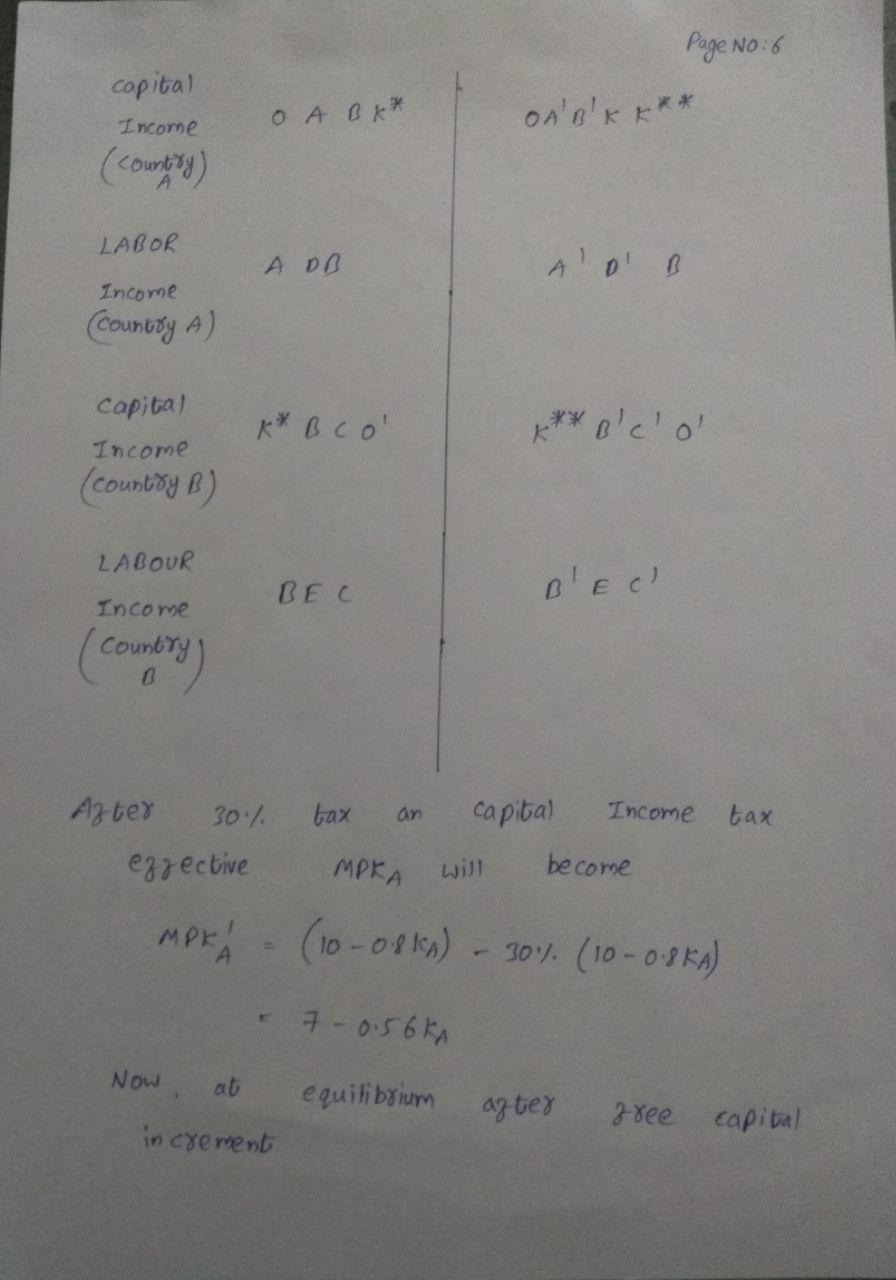 Page NO:6
capital
Income O A B K* OA'B'K K**
(country A)
LABOR
Income A DB A' D' B
(country A)
capital
Income K* B C O' K** B'C' O'
(country B)
LABOUR
Income BE C B' E C'
(country B)
After 30% tax on capital Income tax
effective MPKA will become
MPK'A = (10-0.8KA) - 30% (10-0.8KA)
= 7-0.56KA
Now, at equilibrium after free capital
increment